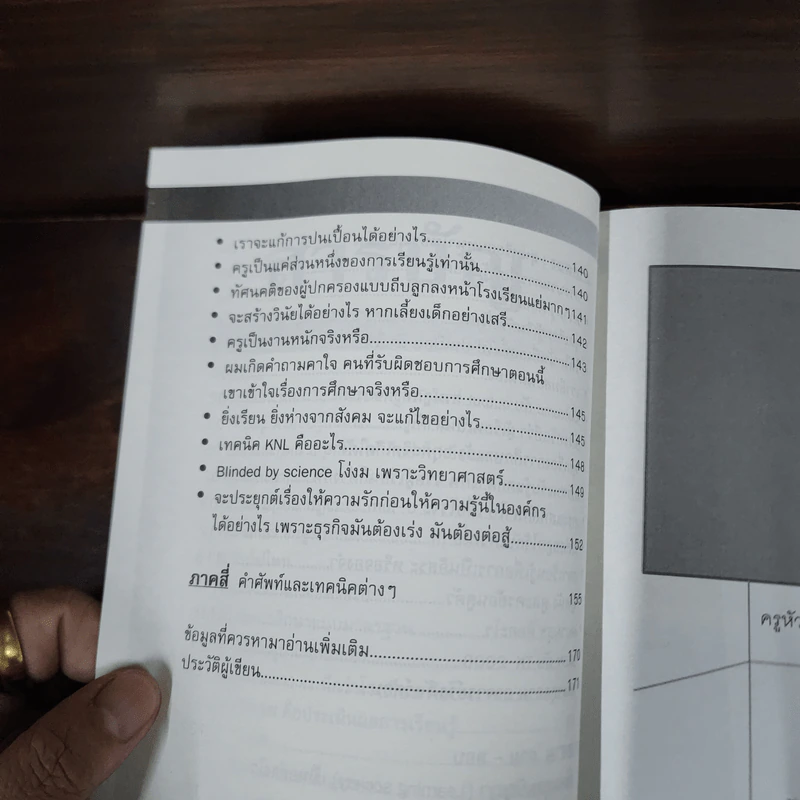 • เราจะแก้การปนเปื้อนได้อย่างไร.......................................140
• ครูเป็นแค่ส่วนหนึ่งของการเรียนรู้เท่านั้น..........................140
• ทัศนคติของผู้ปกครองแบบถีบลูกลงหน้าโรงเรียนแย่มากๆ141
• จะสร้างวินัยได้อย่างไร หากเลี้ยงเด็กอย่างเสรี................142
• ครูเป็นงานหนักจริงหรือ...................................................143
• ผมเกิดคำถามคาใจ คนที่รับผิดชอบการศึกษาตอนนี้
เขาเข้าใจเรื่องการศึกษาจริงหรือ......................................145
• ยิ่งเรียน ยิ่งห่างจากสังคม จะแก้ไขอย่างไร.....................145
• เทคนิค KNL คืออะไร.......................................................148
• Blinded by science โง่งม เพราะวิทยาศาสตร์................149
• จะประยุกต์เรื่องให้ความรักก่อนให้ความรู้นี้ในองค์กร
ได้อย่างไร เพราะธุรกิจมันต้องเร่ง มันต้องต่อสู้...............152
ภาคสี่ คำศัพท์และเทคนิคต่างๆ 155
ข้อมูลที่ควรหามาอ่านเพิ่มเติม..............................................170
ประวัติผู้เขียน.....................................................................171
ครูหัว